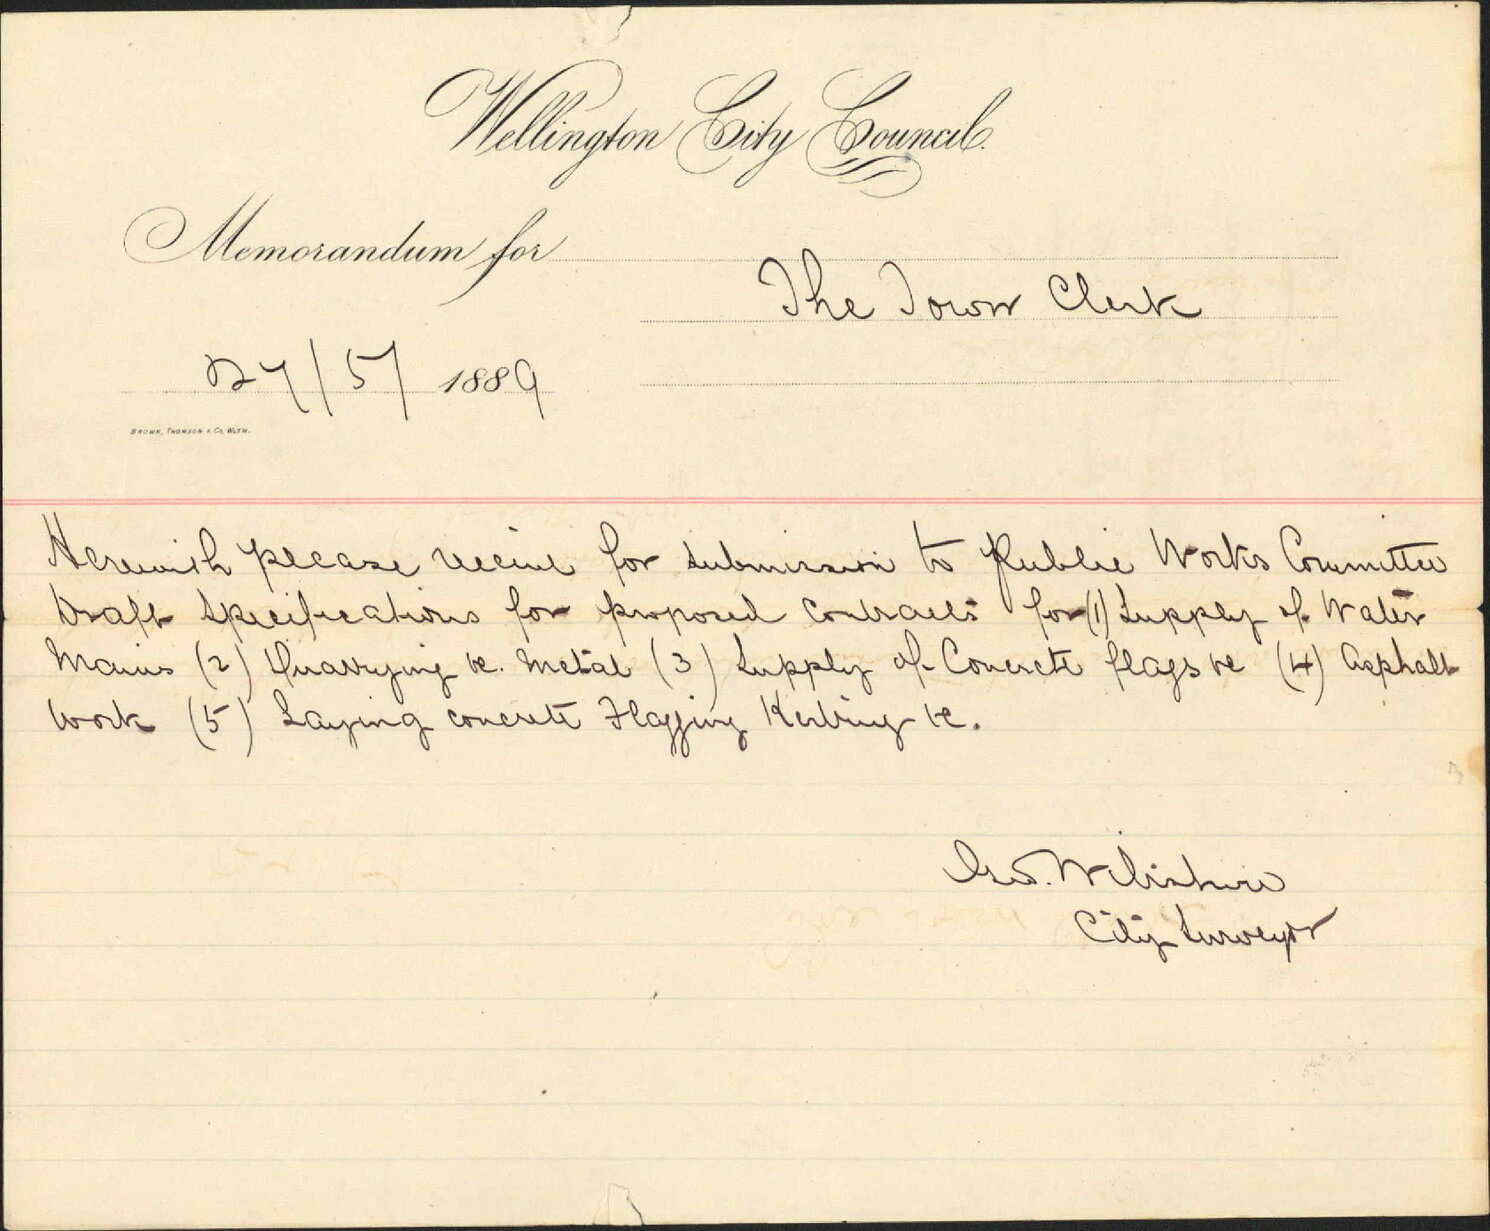 Wellington City Council.
Memorandum for
The Town Clerk
27/5/1889
BROWN, THOMSON & CO, WLTN.
Herewith please receive for submission to Public Works Committee
Draft Specifications for proposed Contracts for (1) Supply of Water
Mains (2) Quarrying &c. Metal (3) Supply of Concrete flags &c (4) Asphalt
work (5) Laying concrete Flagging Kerbing &c.
Geo. Wiltshire
City Surveyor